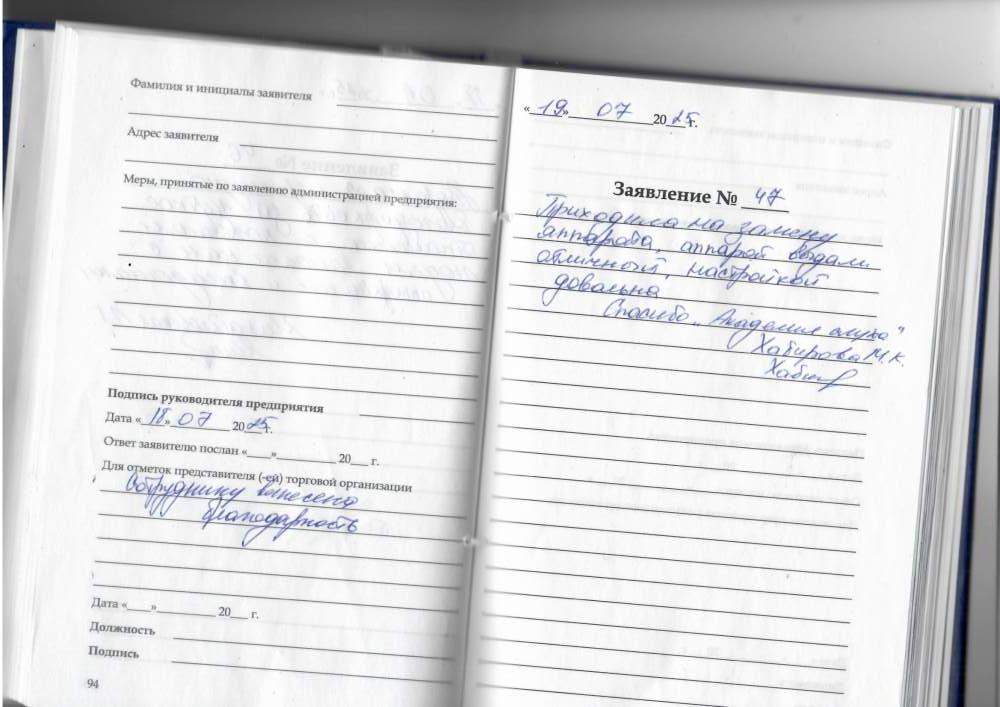 Фамилия и инициалы заявителя
Адрес заявителя
Меры, принятые по заявлению администрацией предприятия:
Подпись руководителя предприятия
Дата «18» 07 2025г.
Ответ заявителю послан «____»__________ 20___ г.
Для отметок представителя (-ей) торговой организации
Сотруднику вынесена
благодарность
Дата «____»__________ 20___ г.
Должность
Подпись
94
«19» 07 2025г.
Заявление № 47
Приходила на замену
аппарата, аппарат выдали
отличный, настройкой
довольна
Спасибо „Академия слуха"
Хабирова М.К.